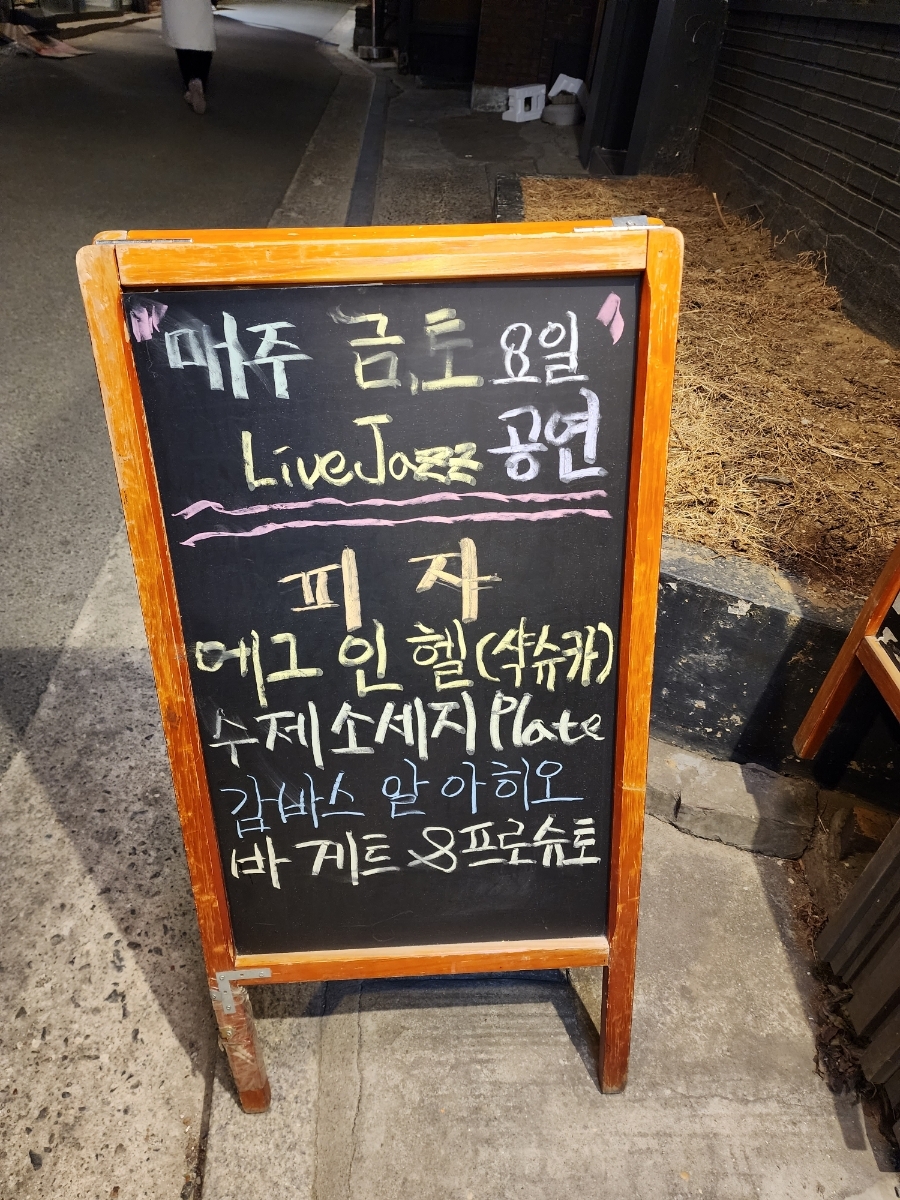 매주 금,토 요일
Live Jazz 공연
피 자
에그 인 헬 (샥슈카)
수제소세지 Plate
감바스 알 아히오
바게트 & 프로슈토